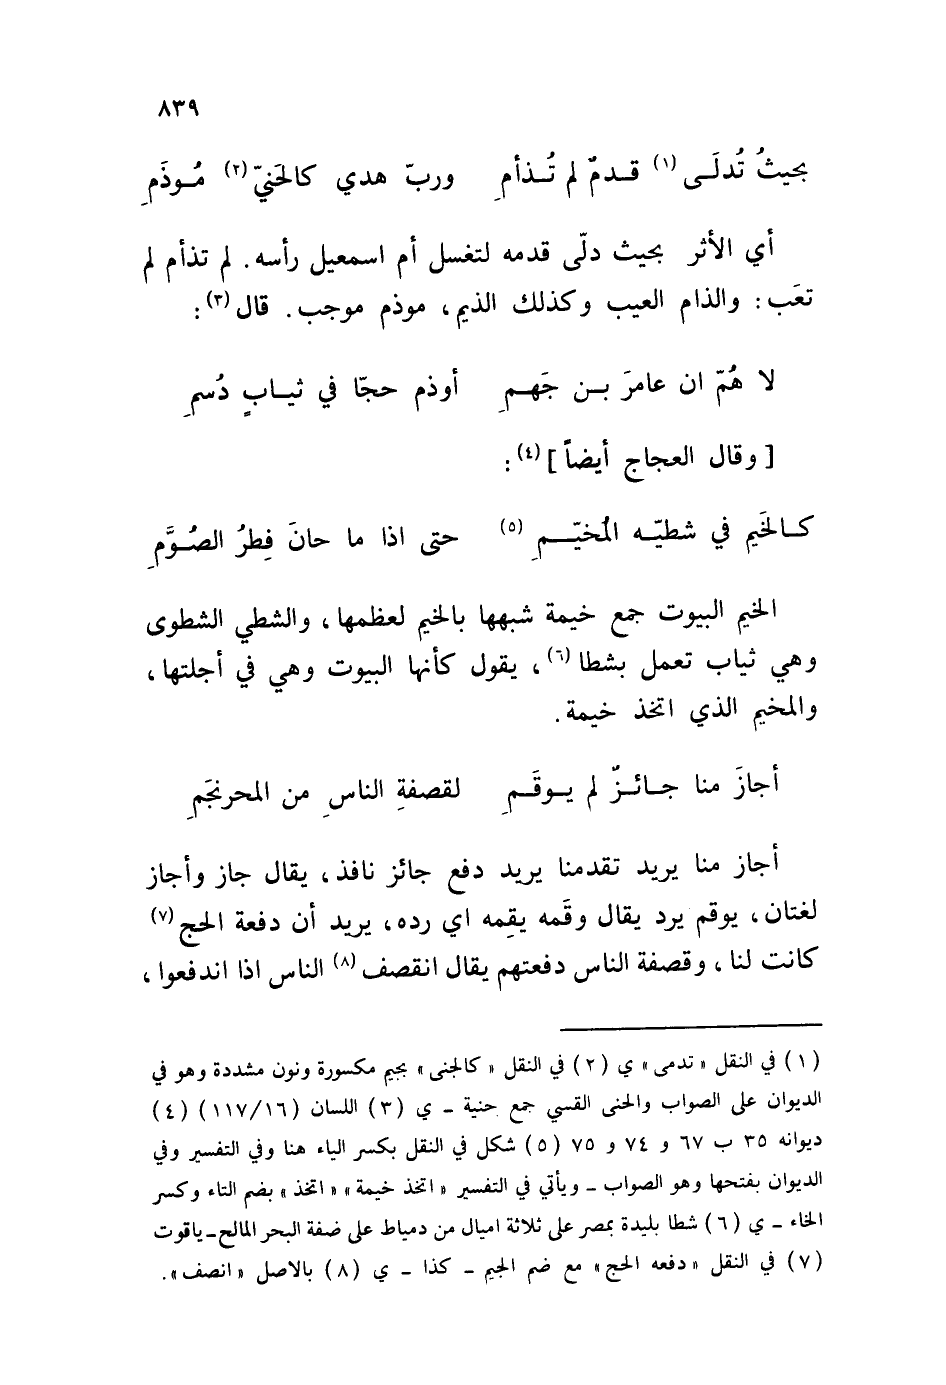 ٨٣٩
بحيثُ تُدلَـى (١) قـدمٌ لم تُـذأمِ وربّ هدي كالحَنيّ (٢) مُـوذَمِ
أي الأثر بحيث دلّى قدمه لتغسل أم اسمعيل رأسه. لم تذأم لم
تعَب: والذام العيب وكذلك الذيم، موذم موجب. قال (٣):
لا هُمّ ان عامرَ بـن جَهـمِ أوذم حجّا في ثيـابٍ دُسمِ
[وقال العجاج أيضاً] (٤):
كـالخَيمِ في شطيّـه المُخيّـمِ (٥) حتى اذا ما حانَ فِطرُ الصُوَّمِ
الخيم البيوت جمع خيمة شبهها بالخيم لعظمها، والشطي الشطوى
وهي ثياب تعمل بشطا (٦)، يقول كأنها البيوت وهي في أجلتها،
والمخيم الذي اتخذ خيمة.
أجازَ منا جـائـزٌ لم يـوقَـمِ لقصفةِ الناسِ من المحرنجَمِ
أجاز منا يريد تقدمنا يريد دفع جائز نافذ، يقال جاز وأجاز
لغتان، يوقم يرد يقال وقَمه يقِمه اي رده، يريد أن دفعة الحج (٧)
كانت لنا، وقصفة الناس دفعتهم يقال انقصف (٨) الناس اذا اندفعوا،
(١) في النقل «تدمى» ي (٢) في النقل «كالجنى» بجيم مكسورة ونون مشددة وهو في
الديوان على الصواب والحنى القسي جمع حنية ـ ي (٣) اللسان (١٦/١١٧) (٤)
ديوانه ٣٥ ب ٦٧ و ٧٤ و ٧٥ (٥) شكل في النقل بكسر الياء هنا وفي التفسير وفي
الديوان بفتحها وهو الصواب ـ ويأتي في التفسير «اتخذ خيمة» «اتخذ» بضم التاء وكسر
الخاء ـ ي (٦) شطا بليدة بمصر على ثلاثة اميال من دمياط على ضفة البحر المالح ـ ياقوت
(٧) في النقل «دفعه الحج» مع ضم الجيم ـ كذا ـ ي (٨) بالاصل «انصف».